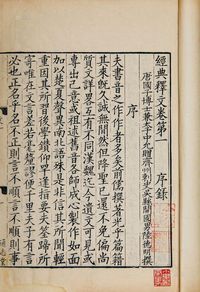 經典釋文卷第一　序錄
唐國子博士兼太子中允贈齊州刺史吳縣開國男陸德明撰
序
夫書音之作作者多矣前儒撰著光乎篇籍
其來既久誠無閒然但降聖已還不免偏尚
質文詳畧互有不同漢魏迄今遺文可見或
專出己意或祖述舊音各師成心製作如面
加以楚夏聲異南北語殊是非信其所聞輕
重因其所習後學鑽仰罕逢指要夫筌蹄所
寄唯在文言差若毫釐謬便千里夫子有言
必也正名乎名不正則言不順言不順則事
通志堂